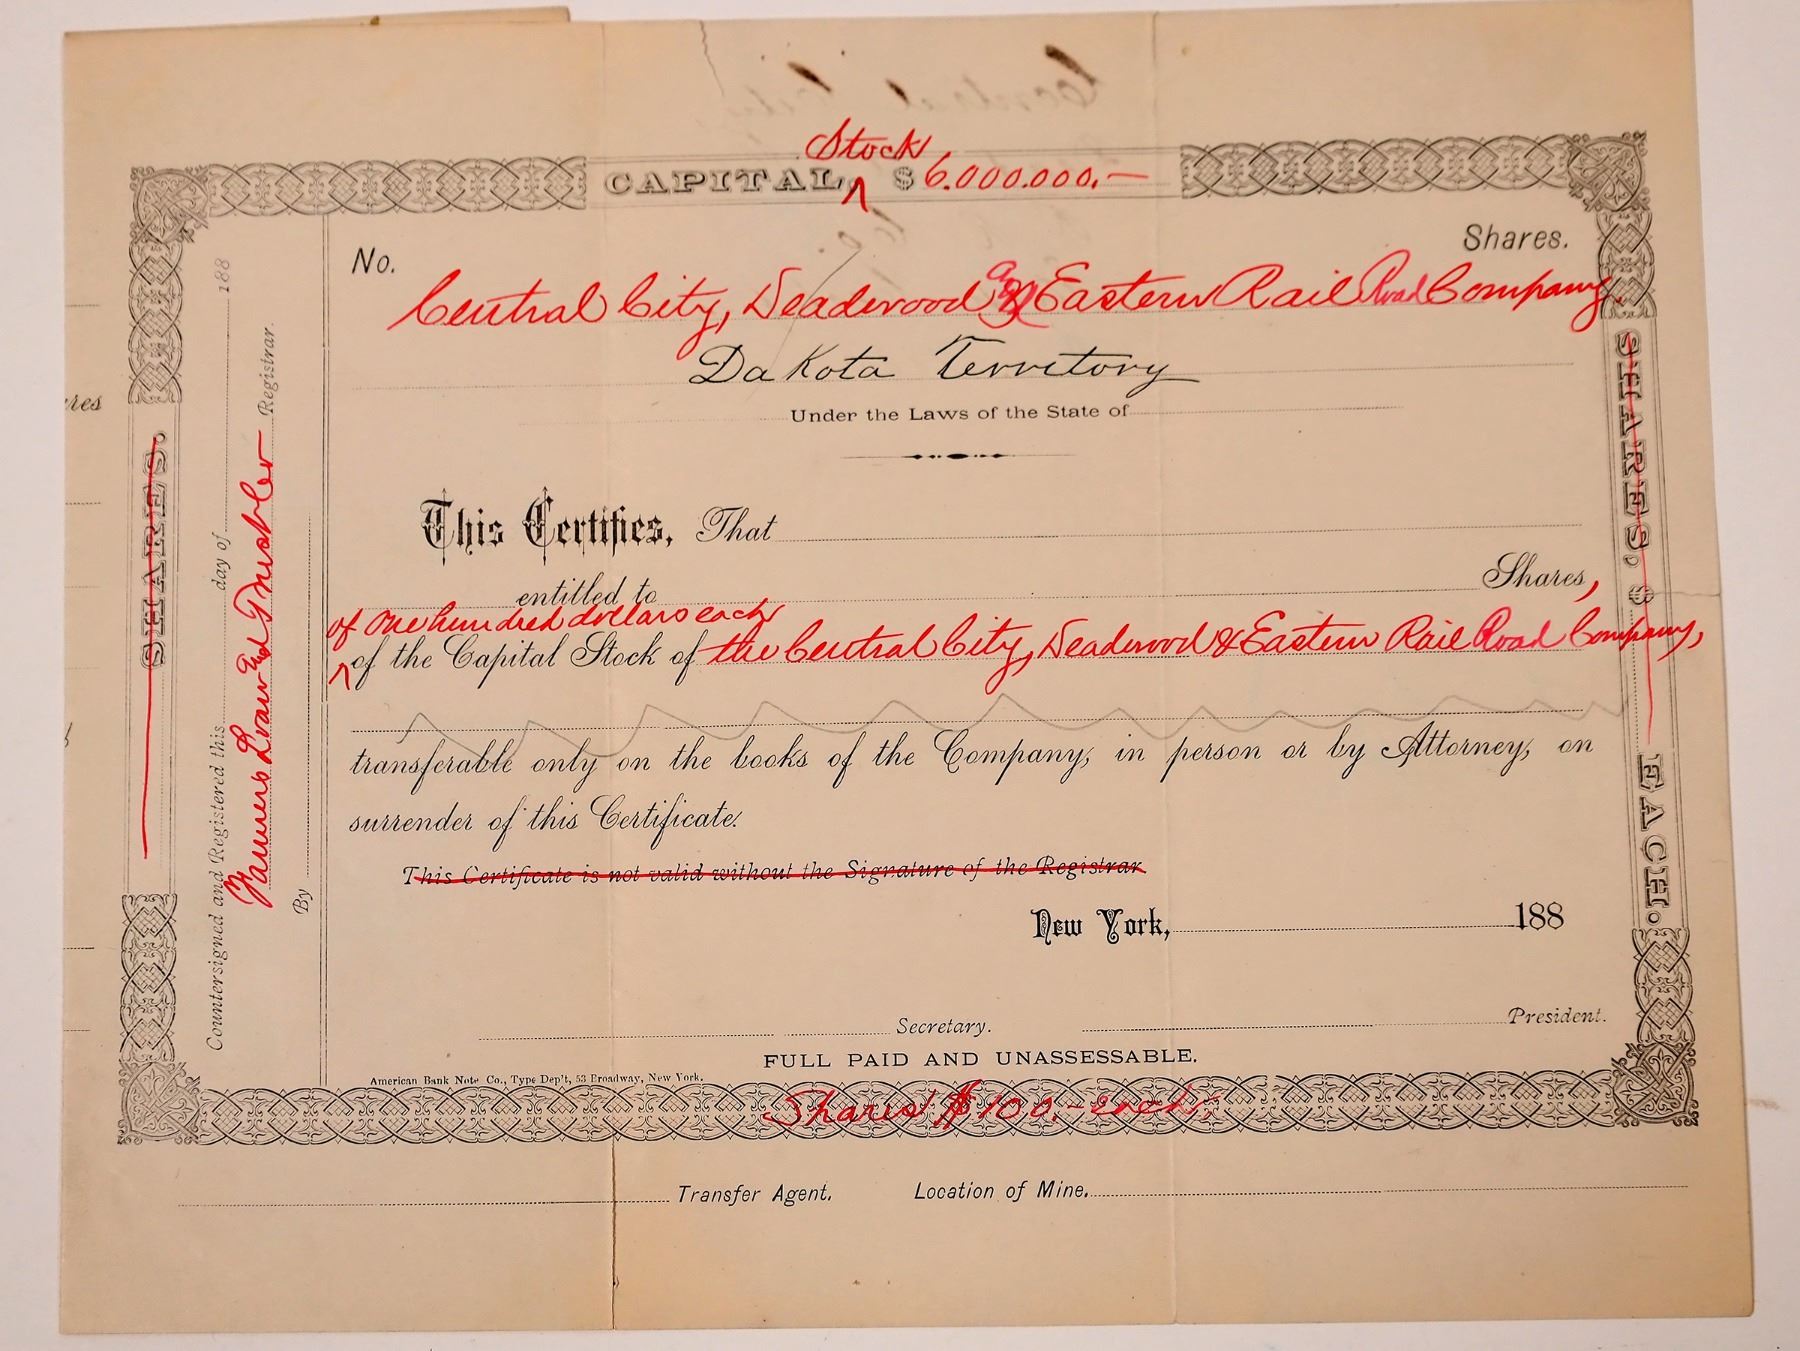 Stock
CAPITAL, $ 6.000.000.—
No.
Shares.
Central City, Deadwood & Eastern Rail Road Company.
Dakota Territory
Under the Laws of the State of
This Certifies, That
entitled to Shares,
of one hundred dollars each
of the Capital Stock of the Central City, Deadwood & Eastern Rail Road Company,
transferable only on the books of the Company, in person or by Attorney, on
surrender of this Certificate.
This Certificate is not valid without the Signature of the Registrar
New York, 188
Secretary.
President.
FULL PAID AND UNASSESSABLE.
American Bank Note Co., Type Dep't, 53 Broadway, New York.
Shares $100.— each.
Transfer Agent.
Location of Mine.
SHARES.
Countersigned and Registered this day of 188
Farmers Loan and Trust Co Registrar.
By
SHARES. $ EACH.